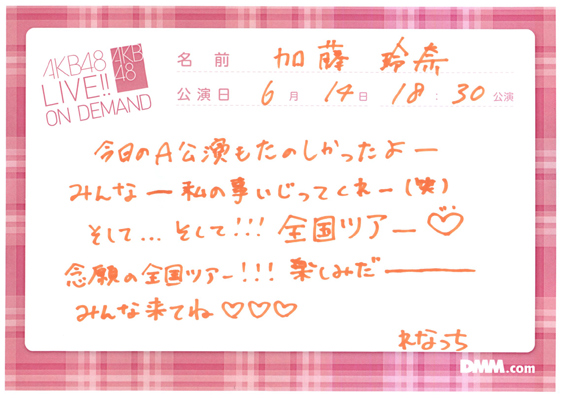 AKB48
LIVE!!
ON DEMAND
AKB
48
名前 加藤 玲奈
公演日 6月 14日 18:30 公演
今日のA公演もたのしかったよー
みんなー私の事いじってくれー(笑)
そして...そして!!!全国ツアー♡
念願の全国ツアー!!!楽しみだー
みんな来てね♡♡♡
れなっち
DMM.com